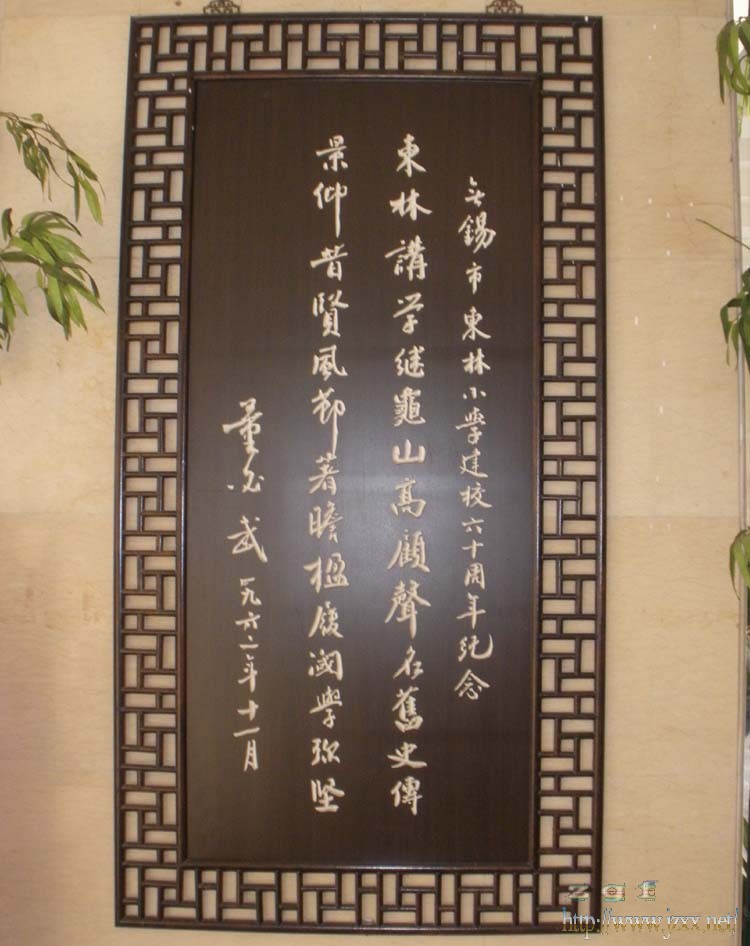 无锡市東林小學建校六十周年纪念
東林講学継龜山高顧聲名舊史傳
景仰昔賢風節著瞻楹履閾學弥坚
董必武一九六二年十一月
zgf
http://www.jzxx.net/